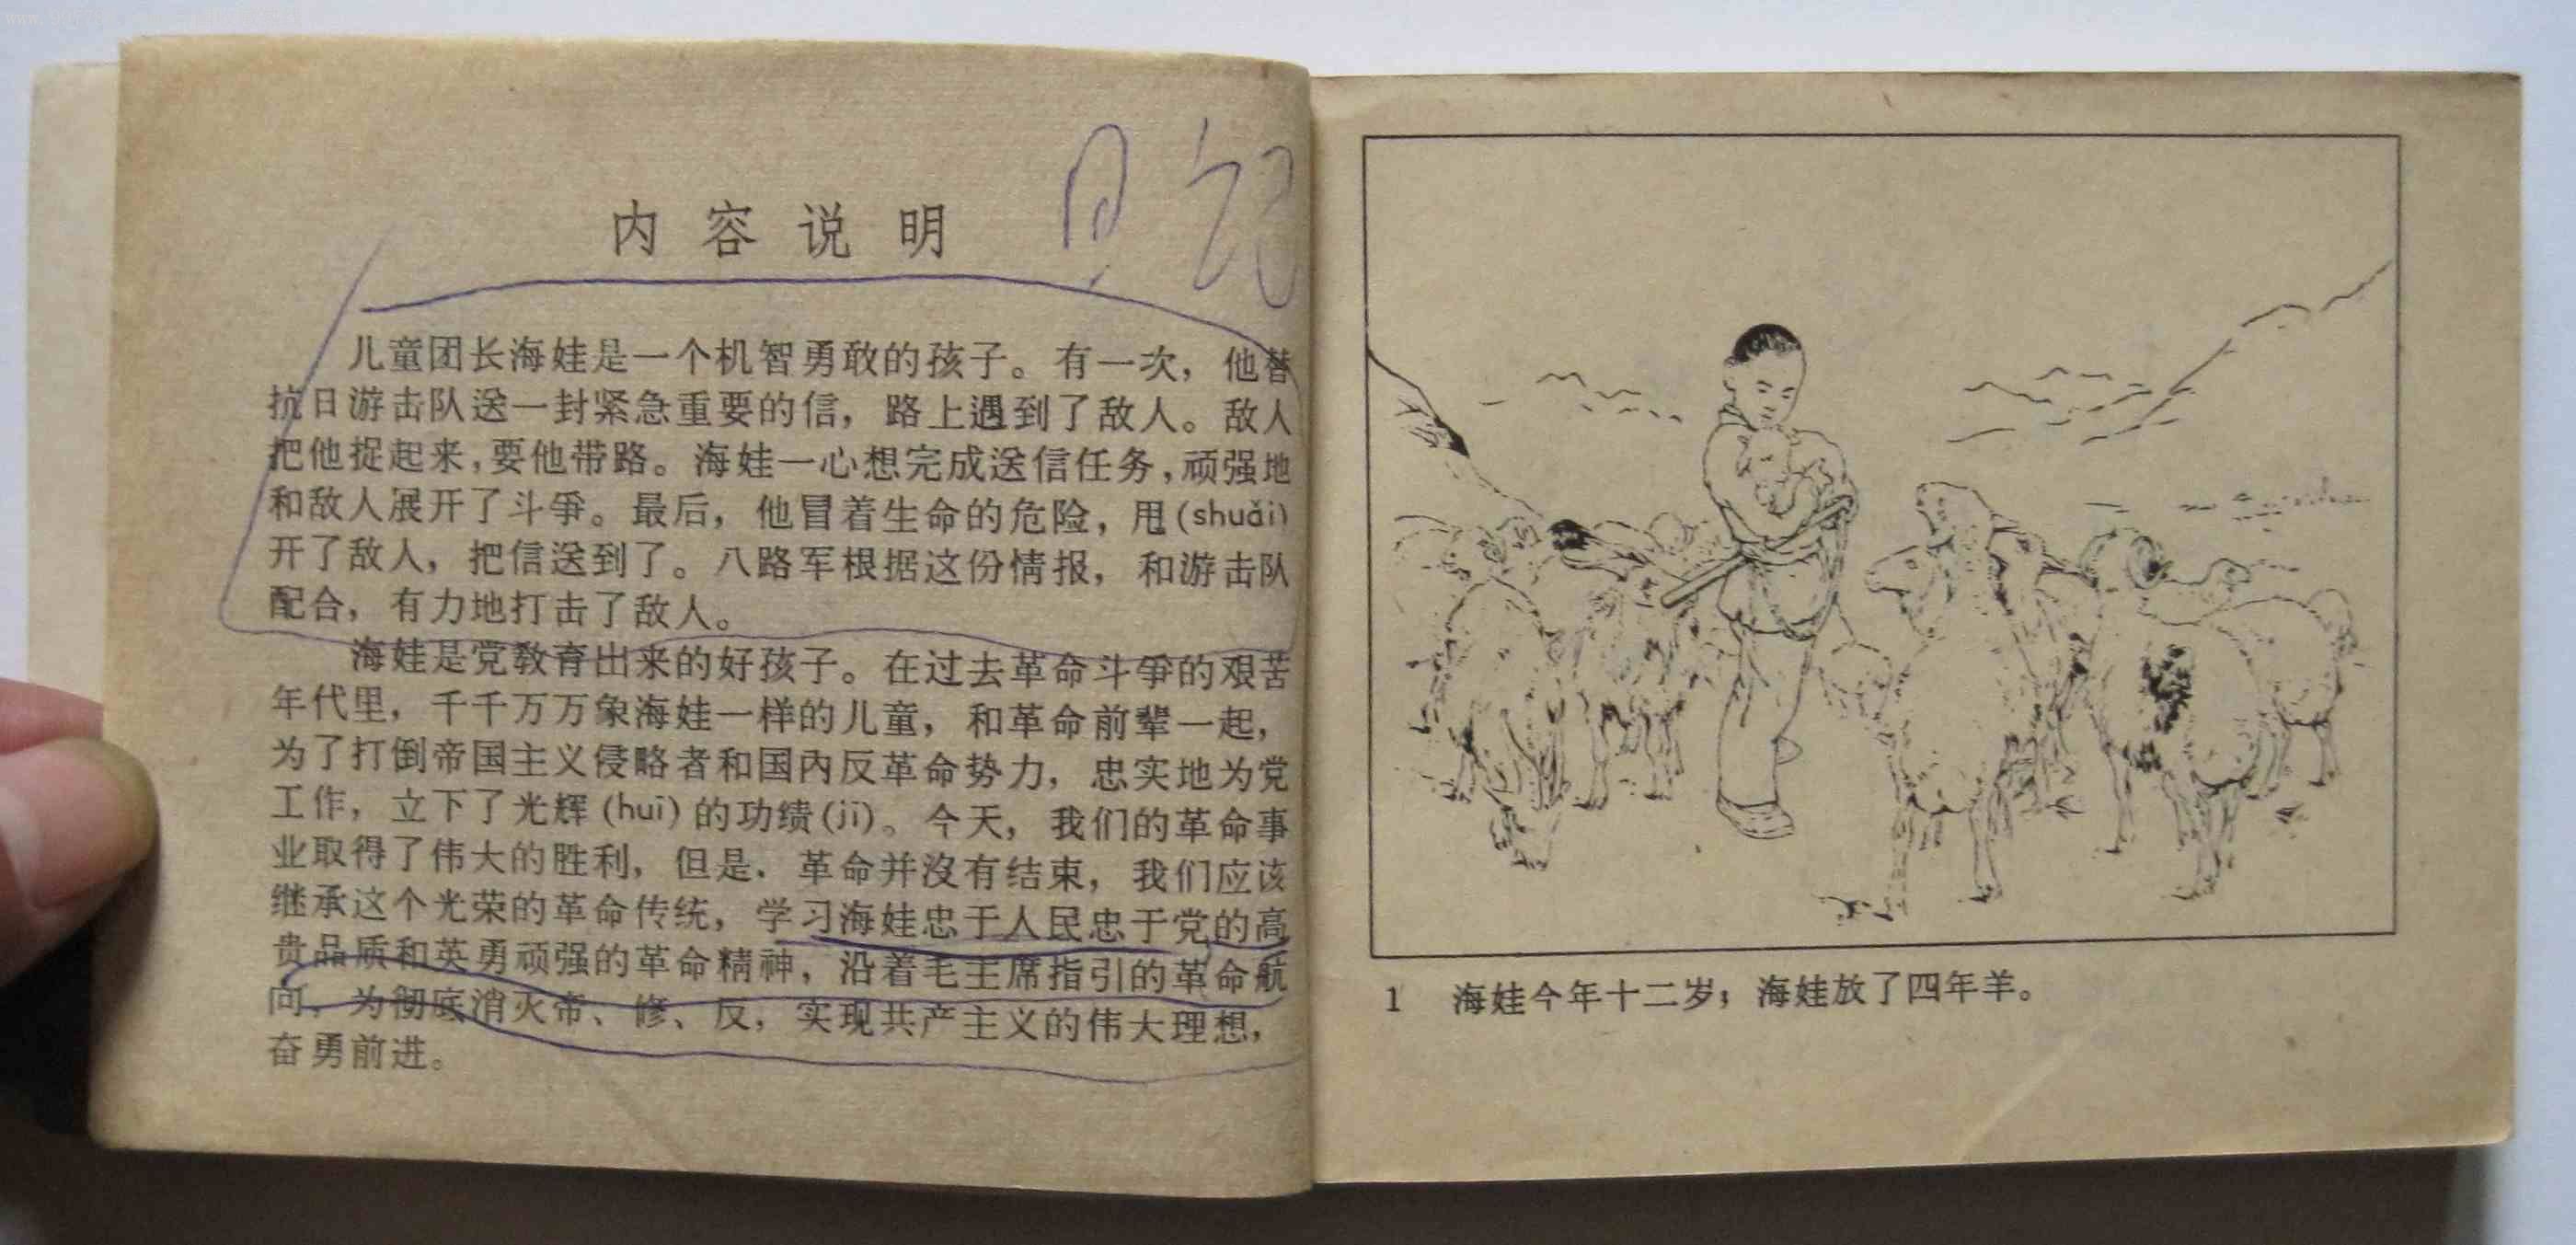 内容说明
儿童团长海娃是一个机智勇敢的孩子。有一次，他替
抗日游击队送一封紧急重要的信，路上遇到了敌人。敌人
把他捉起来，要他带路。海娃一心想完成送信任务，顽强地
和敌人展开了斗争。最后，他冒着生命的危险，甩(shuǎi)
开了敌人，把信送到了。八路军根据这份情报，和游击队
配合，有力地打击了敌人。
海娃是党教育出来的好孩子。在过去革命斗争的艰苦
年代里，千千万万象海娃一样的儿童，和革命前辈一起，
为了打倒帝国主义侵略者和国内反革命势力，忠实地为党
工作，立下了光辉(huī)的功绩(jī)。今天，我们的革命事
业取得了伟大的胜利，但是．革命并没有结束，我们应该
继承这个光荣的革命传统，学习海娃忠于人民忠于党的高
贵品质和英勇顽强的革命精神，沿着毛主席指引的革命航
向，为彻底消灭帝、修、反，实现共产主义的伟大理想，
奋勇前进。
1 海娃今年十二岁；海娃放了四年羊。